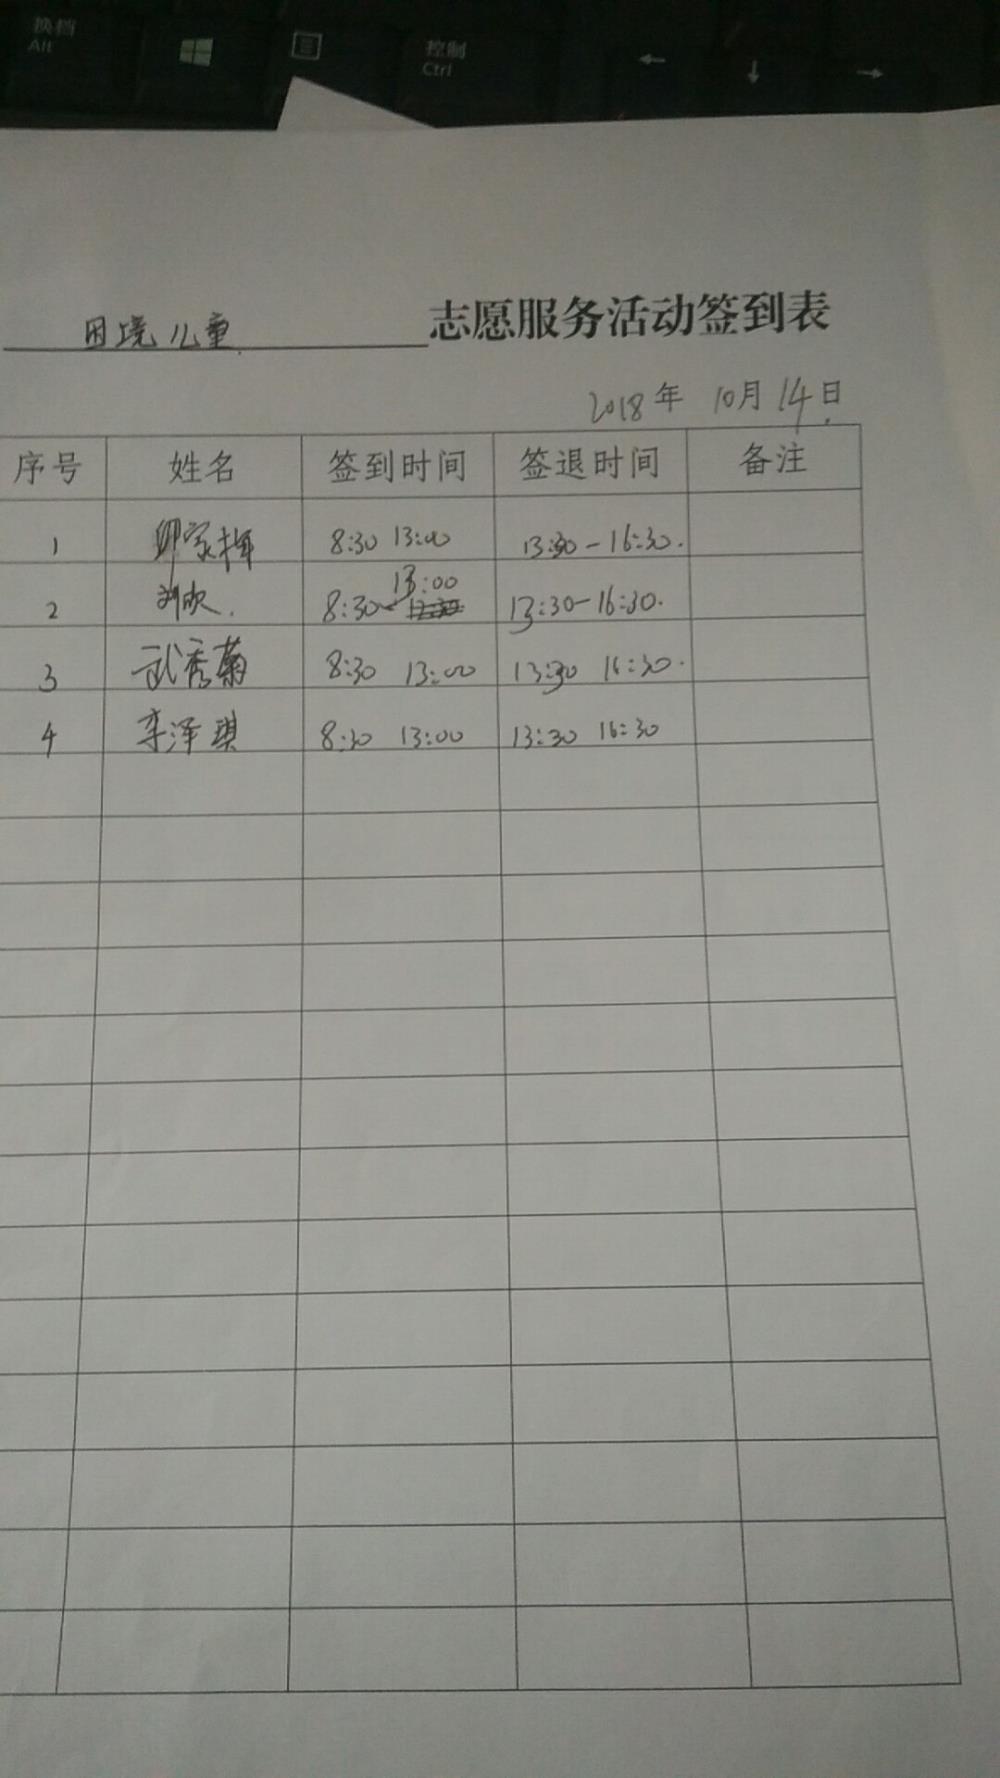 换档
Alt
控制
Ctrl
← ↓ →
困境儿童 志愿服务活动签到表
2018年 10月14日
序号 姓名 签到时间 签退时间 备注
1 8:30 13:00 13:30-16:30.
2 8:30- 13:00 13:30-16:30.
3 武秀菊 8:30 13:00 13:30 16:30.
4 李泽琪 8:30 13:00 13:30 16:30